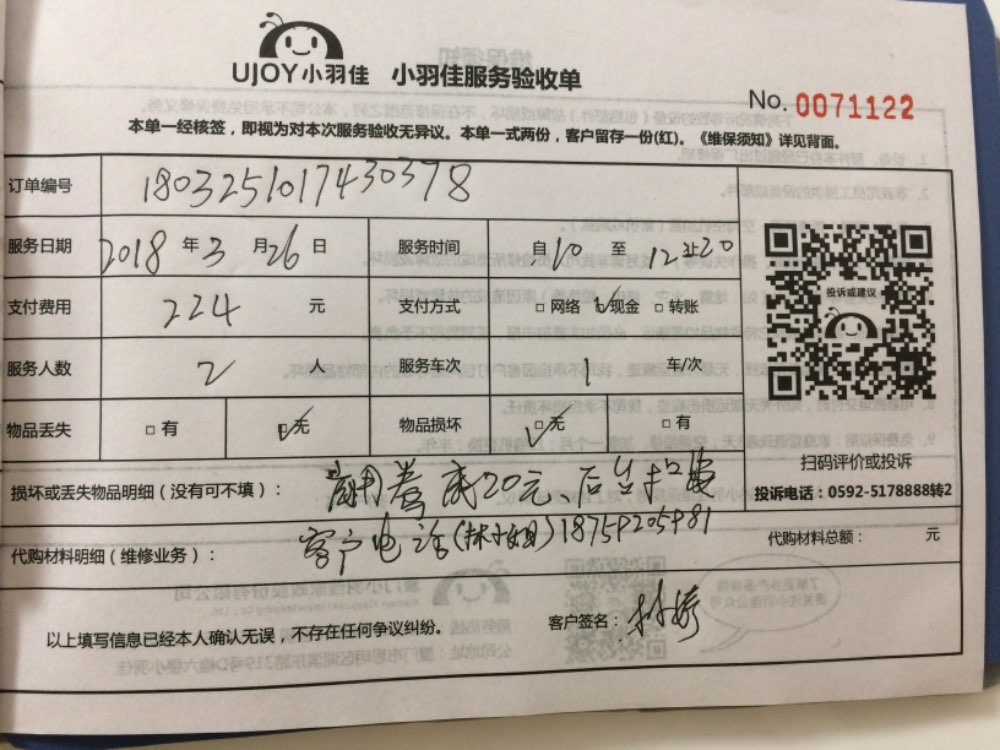 UJOY小羽佳 小羽佳服务验收单
No. 0071122
本单一经核签，即视为对本次服务验收无异议。本单一式两份，客户留存一份(红)。《维保须知》详见背面。
订单编号 180325101743037​8
服务日期 2018 年 3 月 26 日 服务时间 自 10 至 12:20
支付费用 224 元 支付方式 □ 网络 □ 现金 □ 转账
投诉或建议
服务人数 2 人 服务车次 1 车/次
物品丢失 □ 有 □ 无 物品损坏 □ 无 □ 有
扫码评价或投诉
损坏或丢失物品明细（没有可不填）： 用券减20元、后台扣费
投诉电话：0592-5178888转2
客户电话(林小姐)18759205981
代购材料明细（维修业务）： 代购材料总额： 元
以上填写信息已经本人确认无误，不存在任何争议纠纷。 客户签名： 林婷